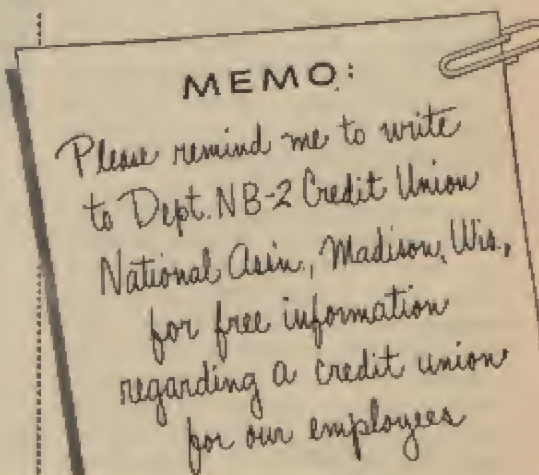 MEMO:
Please remind me to write
to Dept. NB-2 Credit Union
National Ass'n., Madison, Wis.,
for free information
regarding a credit union
for our employees